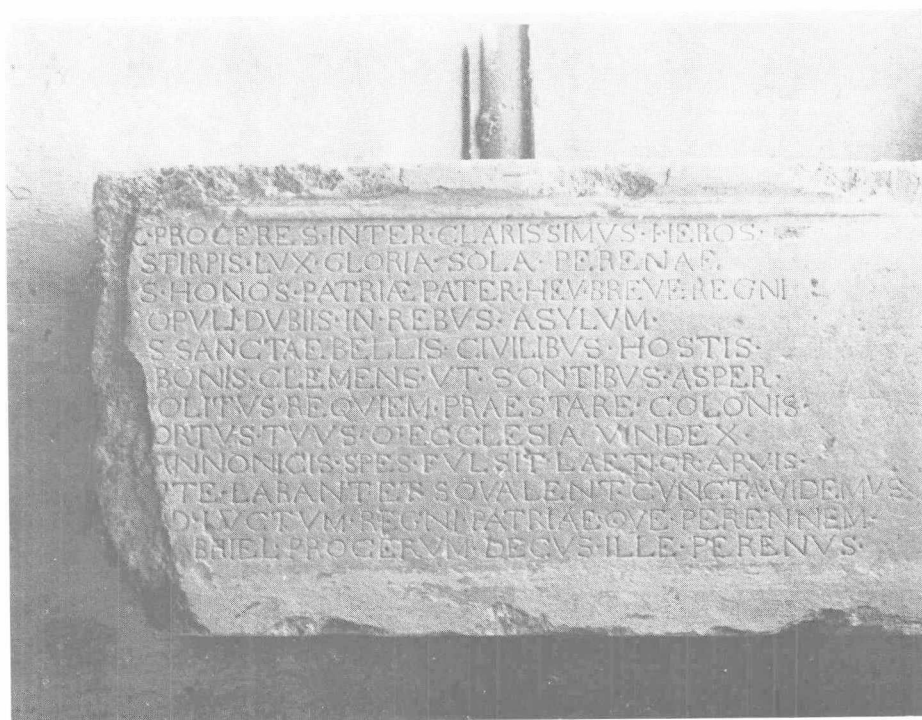 C·PROCERES·INTER·CLARISSIMVS·HEROS·
STIRPIS·LVX·GLORIA·SOLA·PERENAE
S·HONOS·PATRIÆ PATER·HEV·BREVE REGNI
OPVLI·DVBIIS·IN·REBVS·ASYLVM·
S SANCTAE BELLIS·CIVILIBVS·HOSTIS·
BONIS·CLEMENS·VT·SONTIBVS·ASPER·
OLITVS·REQVIEM·PRAESTARE·COLONIS·
ORTVS·TVVS·O·ECCLESIA VINDEX·
ANNONICIS·SPES·FVLSIT·LAETIOR·ARVIS·
TE·LABANT·ET·SQVALENT·CVNCTA·VIDEMVS
D·LVCTVM·REGNI·PATRIAEQVE·PERENNEM·
BHIEL·PROCERVM·DECVS·ILLE·PERENVS·